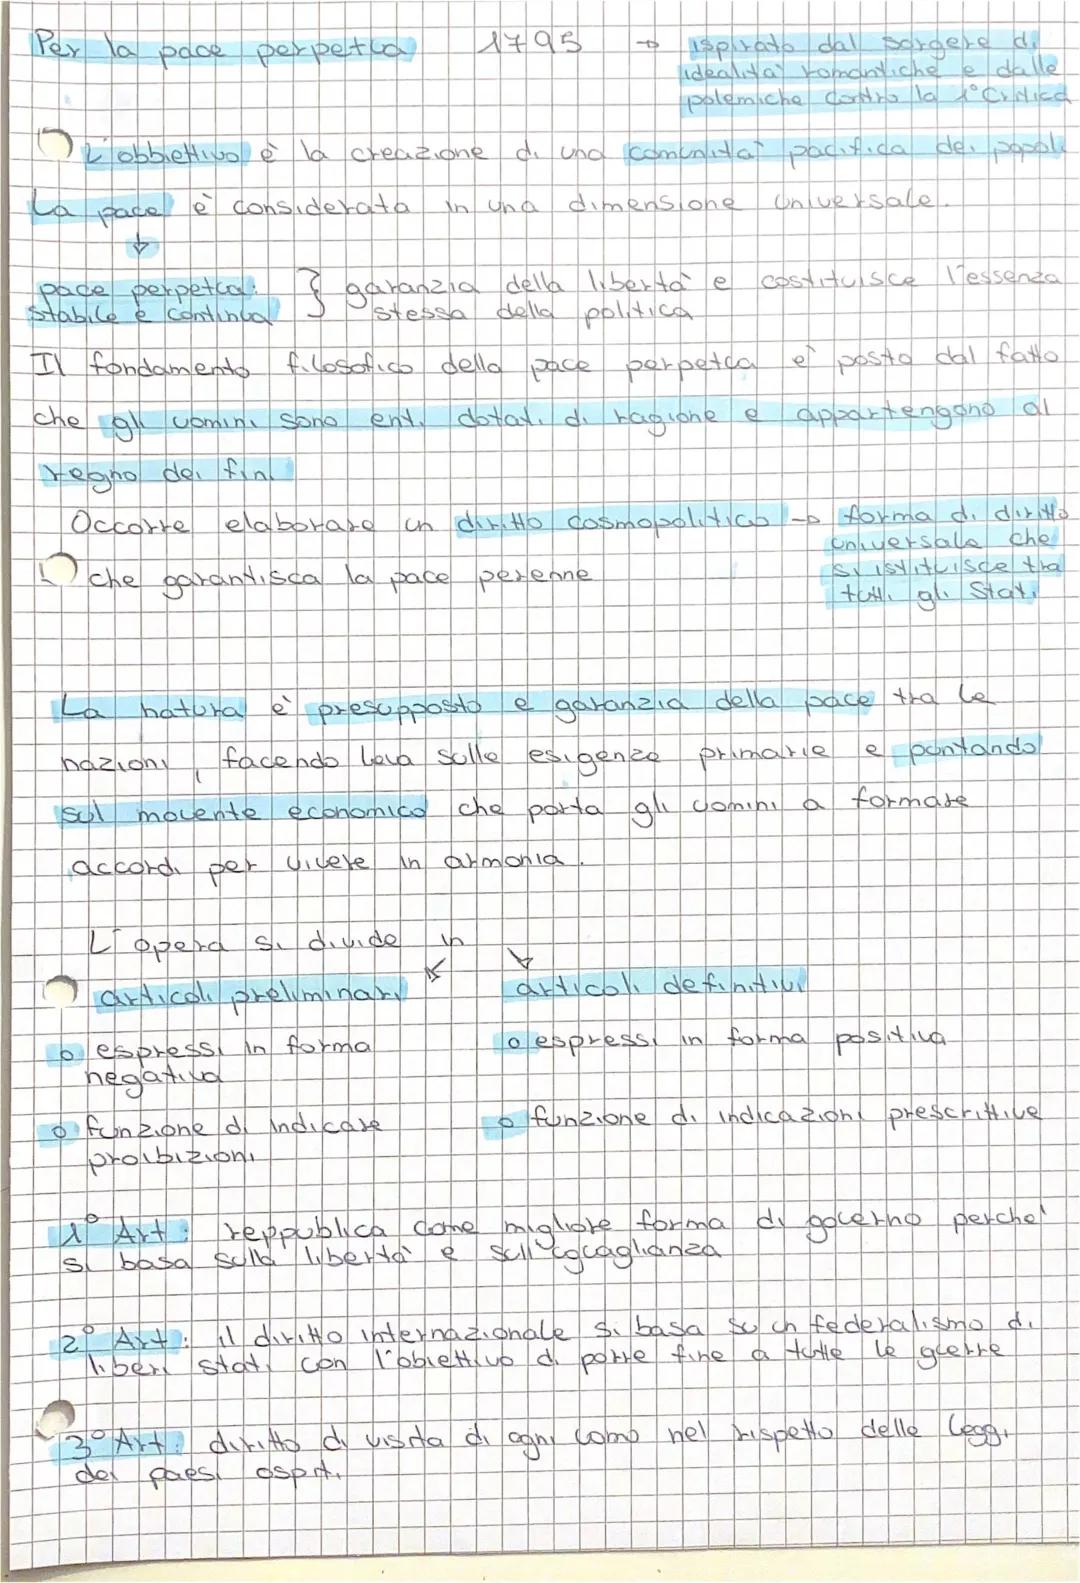 Per la pace perpetua 1795 → ispirato dal sorgere di
idealità romantiche e dalle
polemiche contro la 1° Critica
L'obbiettivo è la creazione di una comunità pacifica dei popoli
La pace è considerata in una dimensione universale.
↓
pace perpetua: } garanzia della libertà e costituisce l'essenza
stabile e continua stessa della politica
Il fondamento filosofico della pace perpetua è posto dal fatto
che gli uomini sono enti dotati di ragione e appartengono al
regno dei fini
Occorre elaborare un diritto cosmopolitico → forma di diritto
universale che
che garantisca la pace perenne si istituisce tra
tutti gli Stati
La natura è presupposto e garanzia della pace tra le
nazioni, facendo leva sulle esigenze primarie e puntando
sul movente economico che porta gli uomini a formare
accordi per vivere in armonia.
L'opera si divide in
articoli preliminari articoli definitivi
o espressi in forma o espressi in forma positiva
negativa
o funzione di indicare o funzione di indicazioni prescrittive
proibizioni
1° Art: reppublica come migliore forma di governo perché
si basa sulla libertà e sull'uguaglianza
2° Art: il diritto internazionale si basa su un federalismo di
liberi stati con l'obiettivo di porre fine a tutte le guerre
3° Art: diritto di visita di ogni uomo nel rispetto delle leggi
dei paesi ospiti